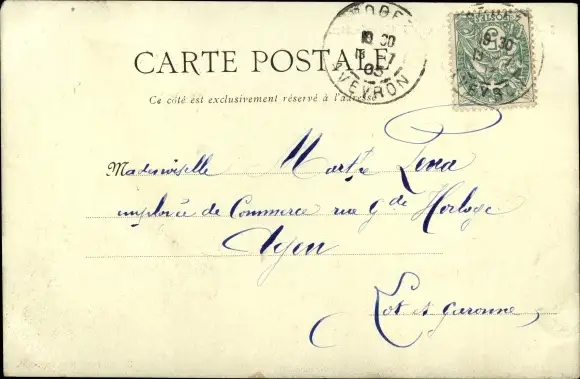 CARTE POSTALE
Ce côté est exclusivement réservé à l'adresse
AVEYRON
05
Mademoiselle Marthe
employée de Commerce rue Gde Horloge
Agen
Lot et Garonne